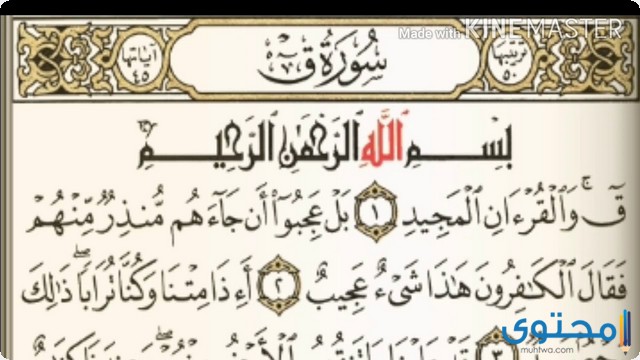 Made with KINEMASTER
ترتيبها ٥٠
سُورَةُ قٓ
آياتها ٤٥
بِسْمِ ٱللَّهِ ٱلرَّحْمَٰنِ ٱلرَّحِيمِ
قٓۚ وَٱلْقُرْءَانِ ٱلْمَجِيدِ ١ بَلْ عَجِبُوٓا۟ أَن جَآءَهُم مُّنذِرٌ مِّنْهُمْ
فَقَالَ ٱلْكَٰفِرُونَ هَٰذَا شَىْءٌ عَجِيبٌ ٢ أَءِذَا مِتْنَا وَكُنَّا تُرَابًاۖ ذَٰلِكَ
٣
محتوى
muhtwa.com